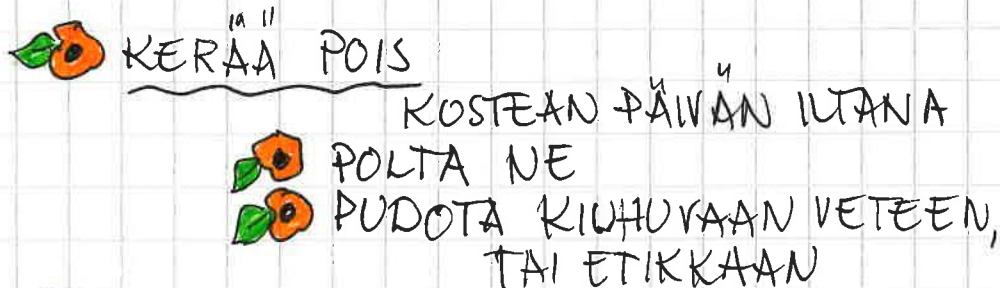 KERÄÄ POIS
KOSTEAN PÄIVÄN ILTANA
POLTA NE
PUDOTA KIUHUVAAN VETEEN,
TAI ETIKKAAN